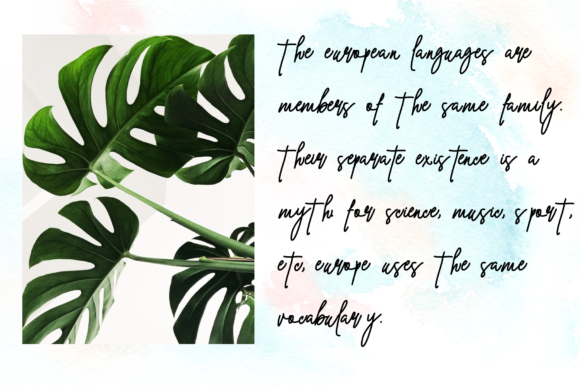 the european languages are
members of the same family.
their separate existence is a
myth. for science, music, sport,
etc, europe uses the same
vocabulary.